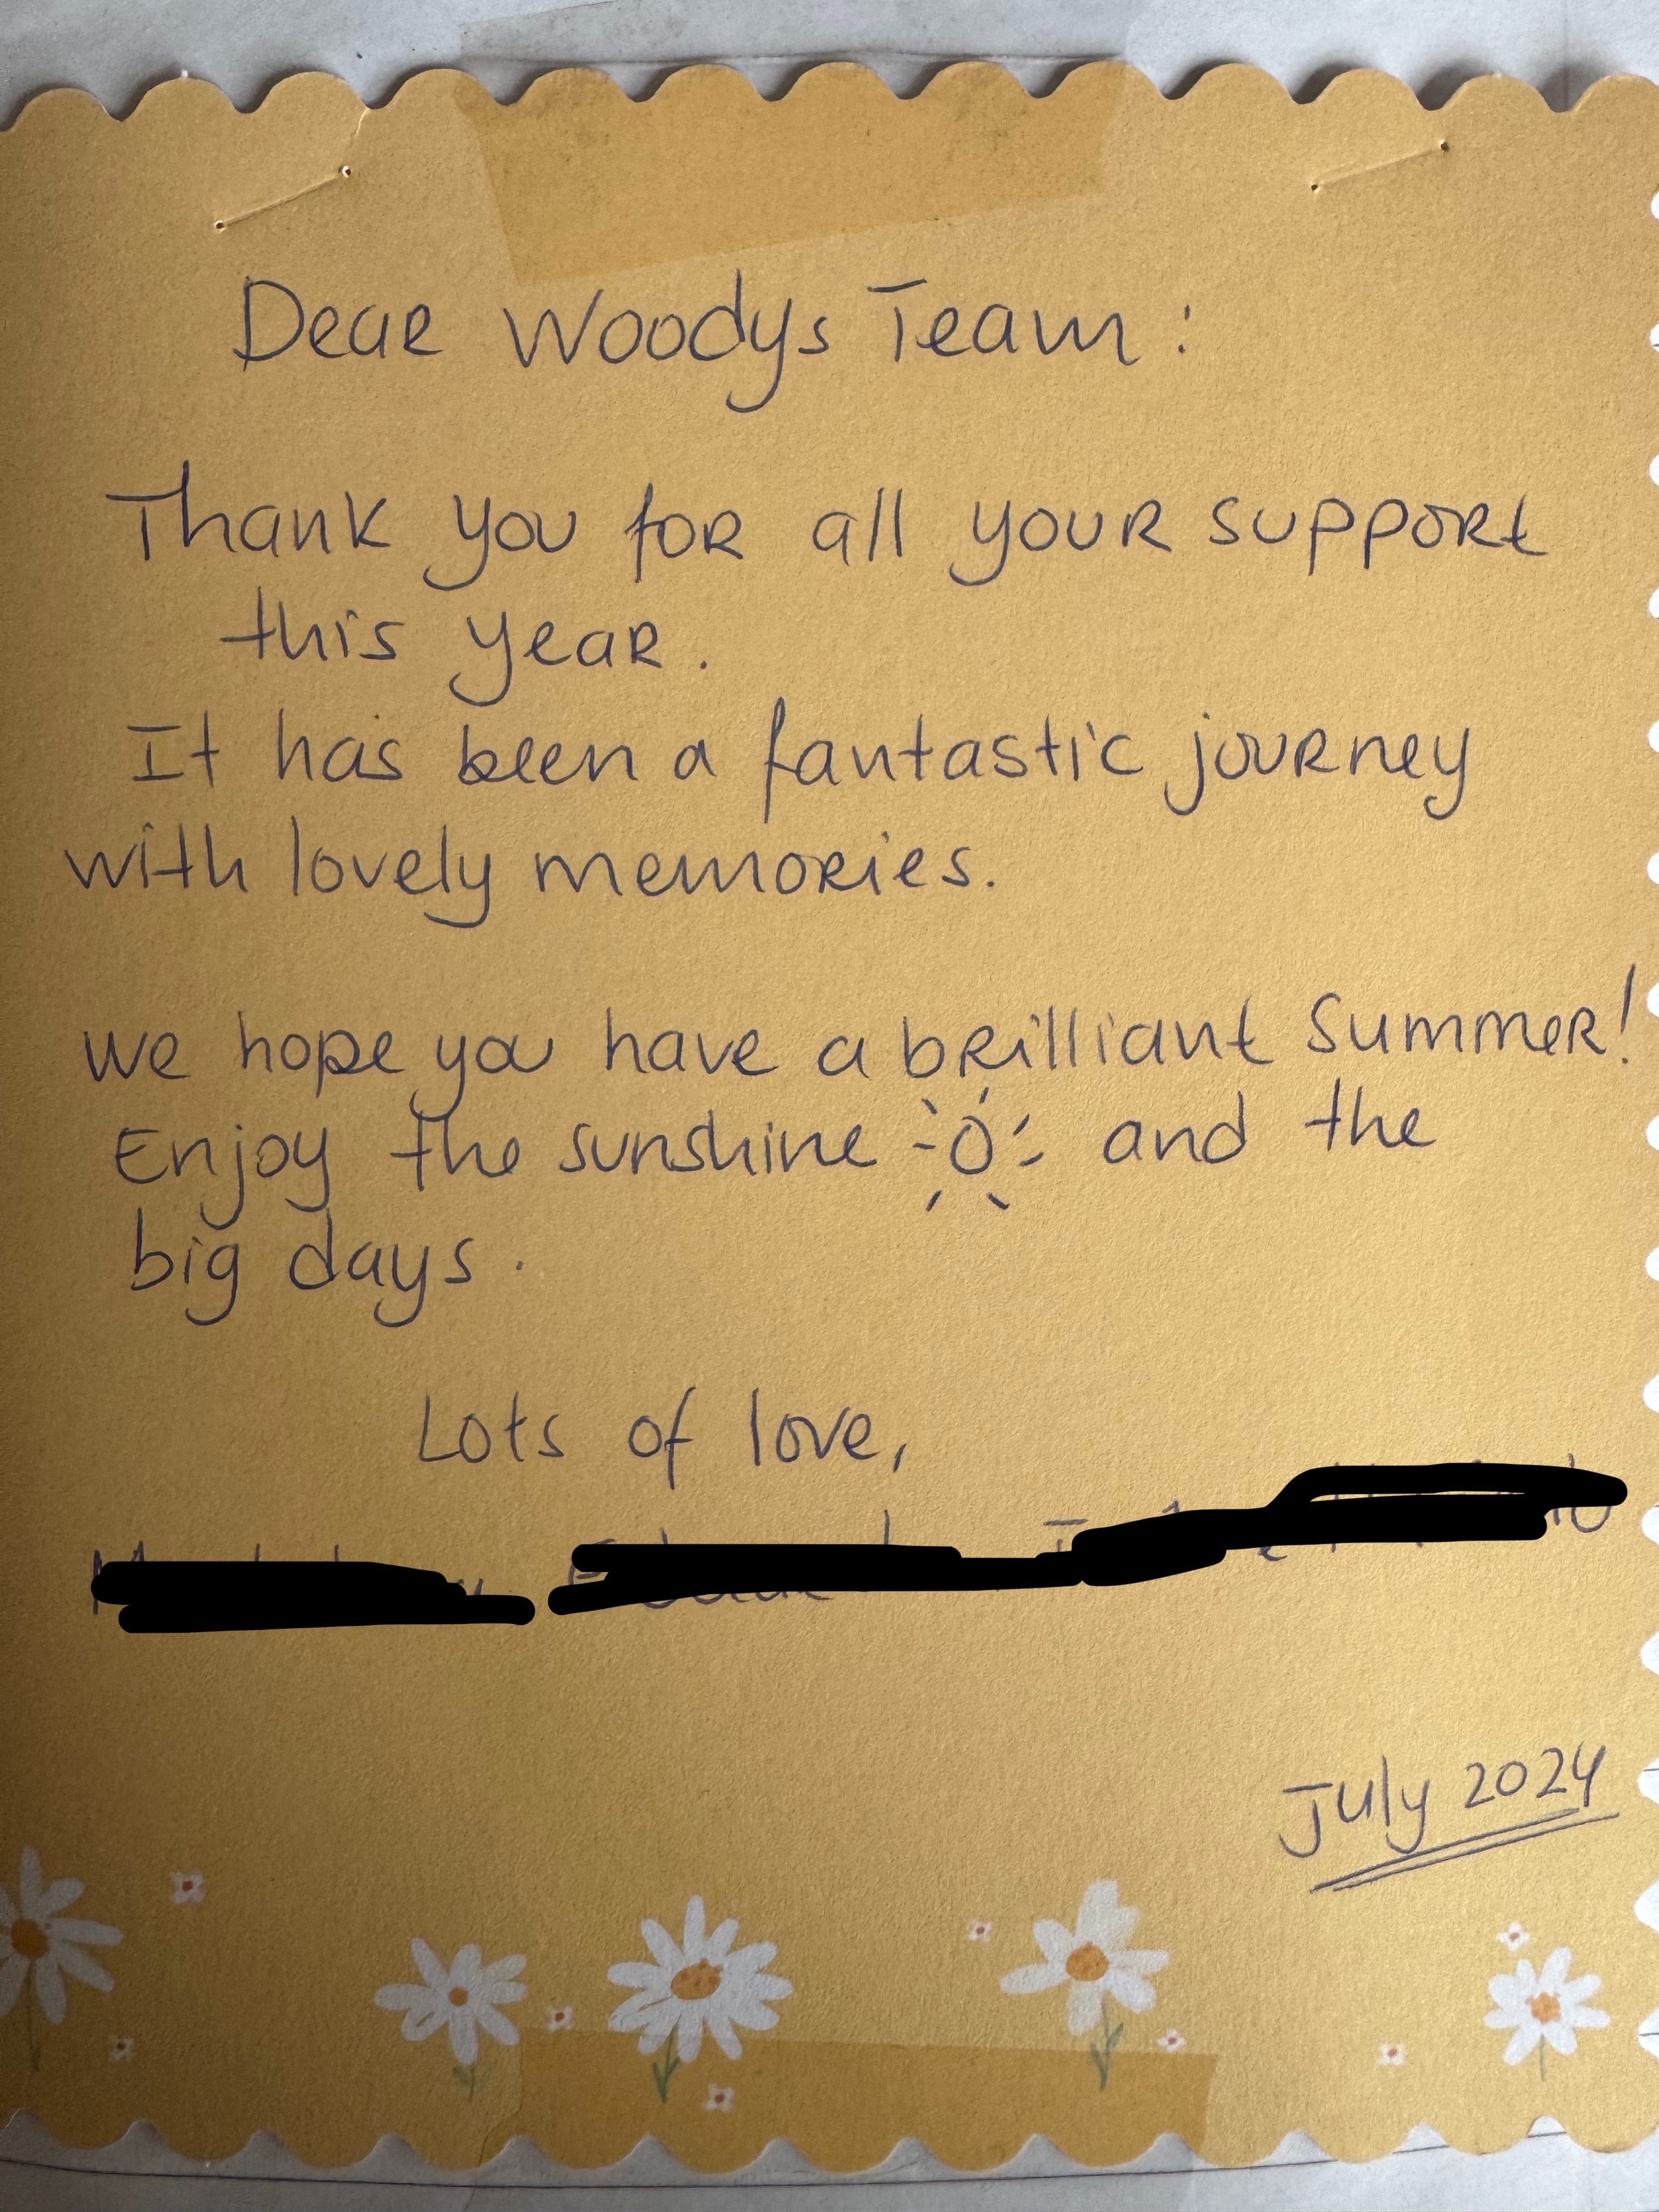 Dear Woodys Team:
Thank you for all your support
this year.
It has been a fantastic journey
with lovely memories.
we hope you have a brilliant Summer!
Enjoy the sunshine and the
big days.
Lots of love,
July 2024